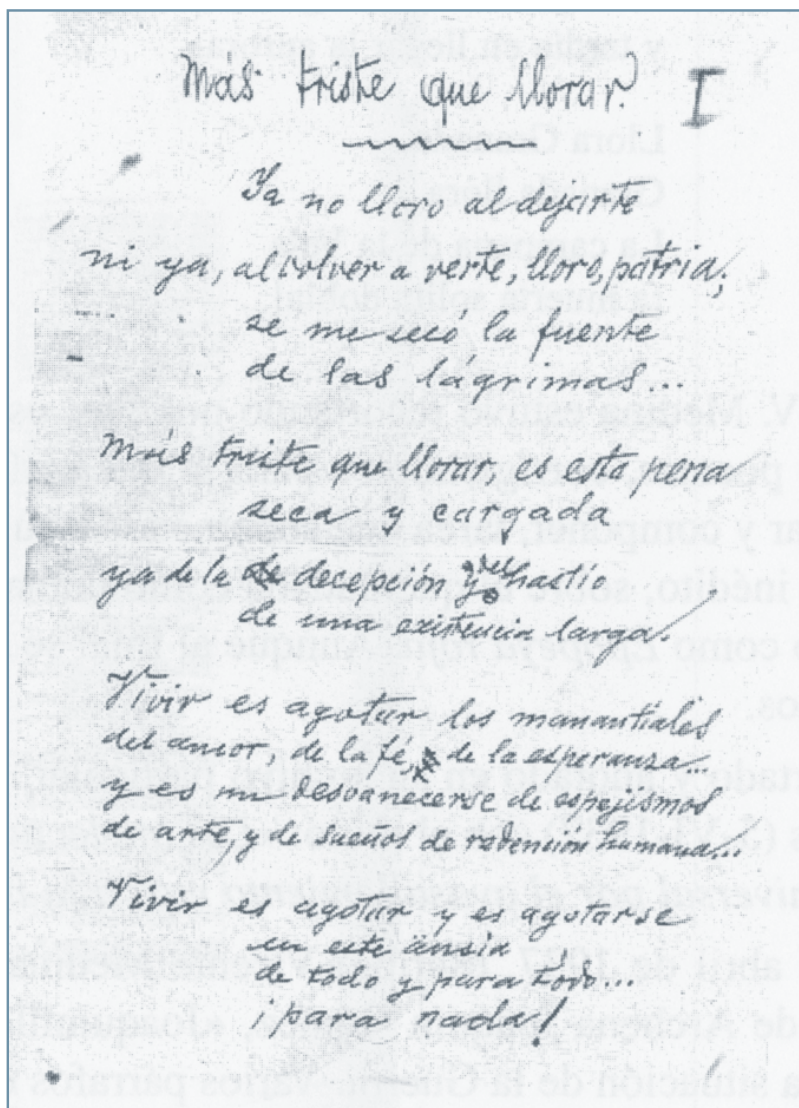 Más triste que llorar. I
Ya no lloro al dejarte
ni ya, al volver a verte, lloro, patria;
se me secó la fuente
de las lágrimas...
Más triste que llorar, es esta pena
seca y cargada
ya de la decepción y del hastío
de una existencia larga.
Vivir es agotar los manantiales
del amor, de la fé, de la esperanza...
y es un desvanecerse de espejismos
de arte, y de sueños de redención humana...
Vivir es agotar y es agotarse
en este ansia
de todo y para todo...
¡para nada!